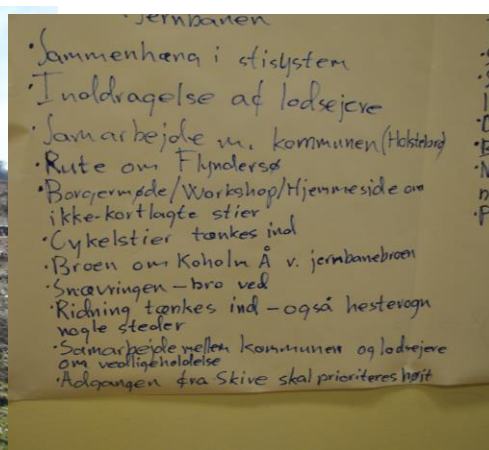 • Jernbanen
• Sammenhæng i stisystem
• Inddragelse af lodsejere
• Samarbejde m. kommunen (Holstebro)
• Rute om Flyndersø
• Borgermøde/Workshop/Hjemmeside om
ikke-kortlagte stier
• Cykelstier tænkes ind
• Broen om Koholm Å v. jernbanebroen
• Snævringen – bro ved
• Ridning tænkes ind – også hestevogn
nogle steder
• Samarbejde mellem kommunen og lodsejere
om vedligeholdelse
• Adgangen fra Skive skal prioriteres højt